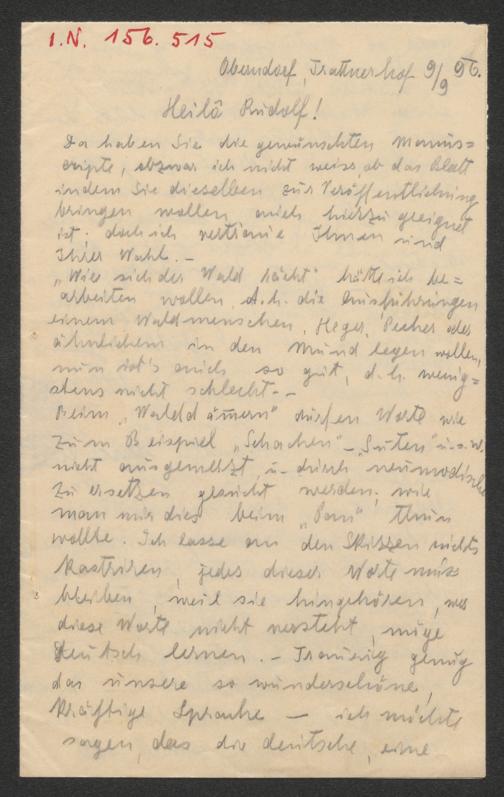 I.N. 156.515
Oberndorf, Trattnerhof 9/9 56.
Heilô Rudolf!
Da haben Sie die gewünschten Manus=
cripte, obzwar ich nicht weiss, ob das Blatt
indem Sie dieselben zur Veröffentlichung
bringen wollen, auch hierzu geeignet
ist; doch ich vertraue Ihnen und
Ihrer Wahl. –
„Wie sich der Wald rächt" hätte ich be=
arbeiten wollen, d.h. die Ausführungen
einem Waldmenschen, Heger, Pecher oder
ähnlichem in den Mund legen wollen,
nun ist's auch so gut, d.h. wenig=
stens nicht schlecht. –
Beim „Walddämern" dürfen Worte wie
zum Beispiel „Schachen" – „Suten" u.s.w.
nicht ausgemerzt u. durch neumodische
zu ersetzen gesucht werden, wie
man mir dies beim „Pan" thun
wollte. Ich lasse an den Skizzen nichts
kastriren, jedes dieser Worte muss
bleiben, weil sie hingehören, wer
diese Worte nicht versteht, möge
Deutsch lernen. – Traurig genug
das unsere so wunderschöne,
kräftige Sprache – ich möchte
sagen, das die deutsche, eine